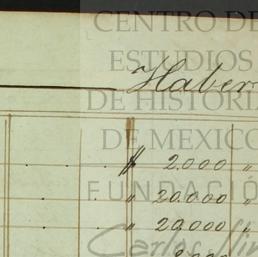 CENTRO DE
ESTUDIOS
Haber
DE HISTORI
DE MEXICO
$ 2.000 "
FUNDACIÓ
" 20.000 "
" 20.000 "
Carlos Slim